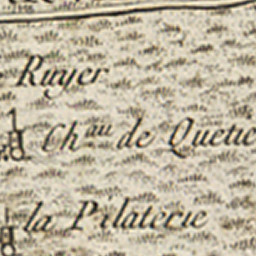 Ruyer
Ch.au de Quetie
la Pilaterie